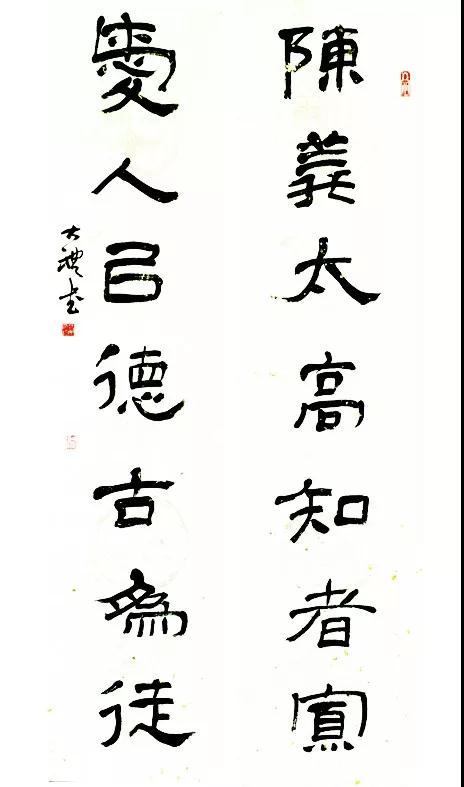 陳義太高知者寡
愛人㠯德古為徒
大禮书